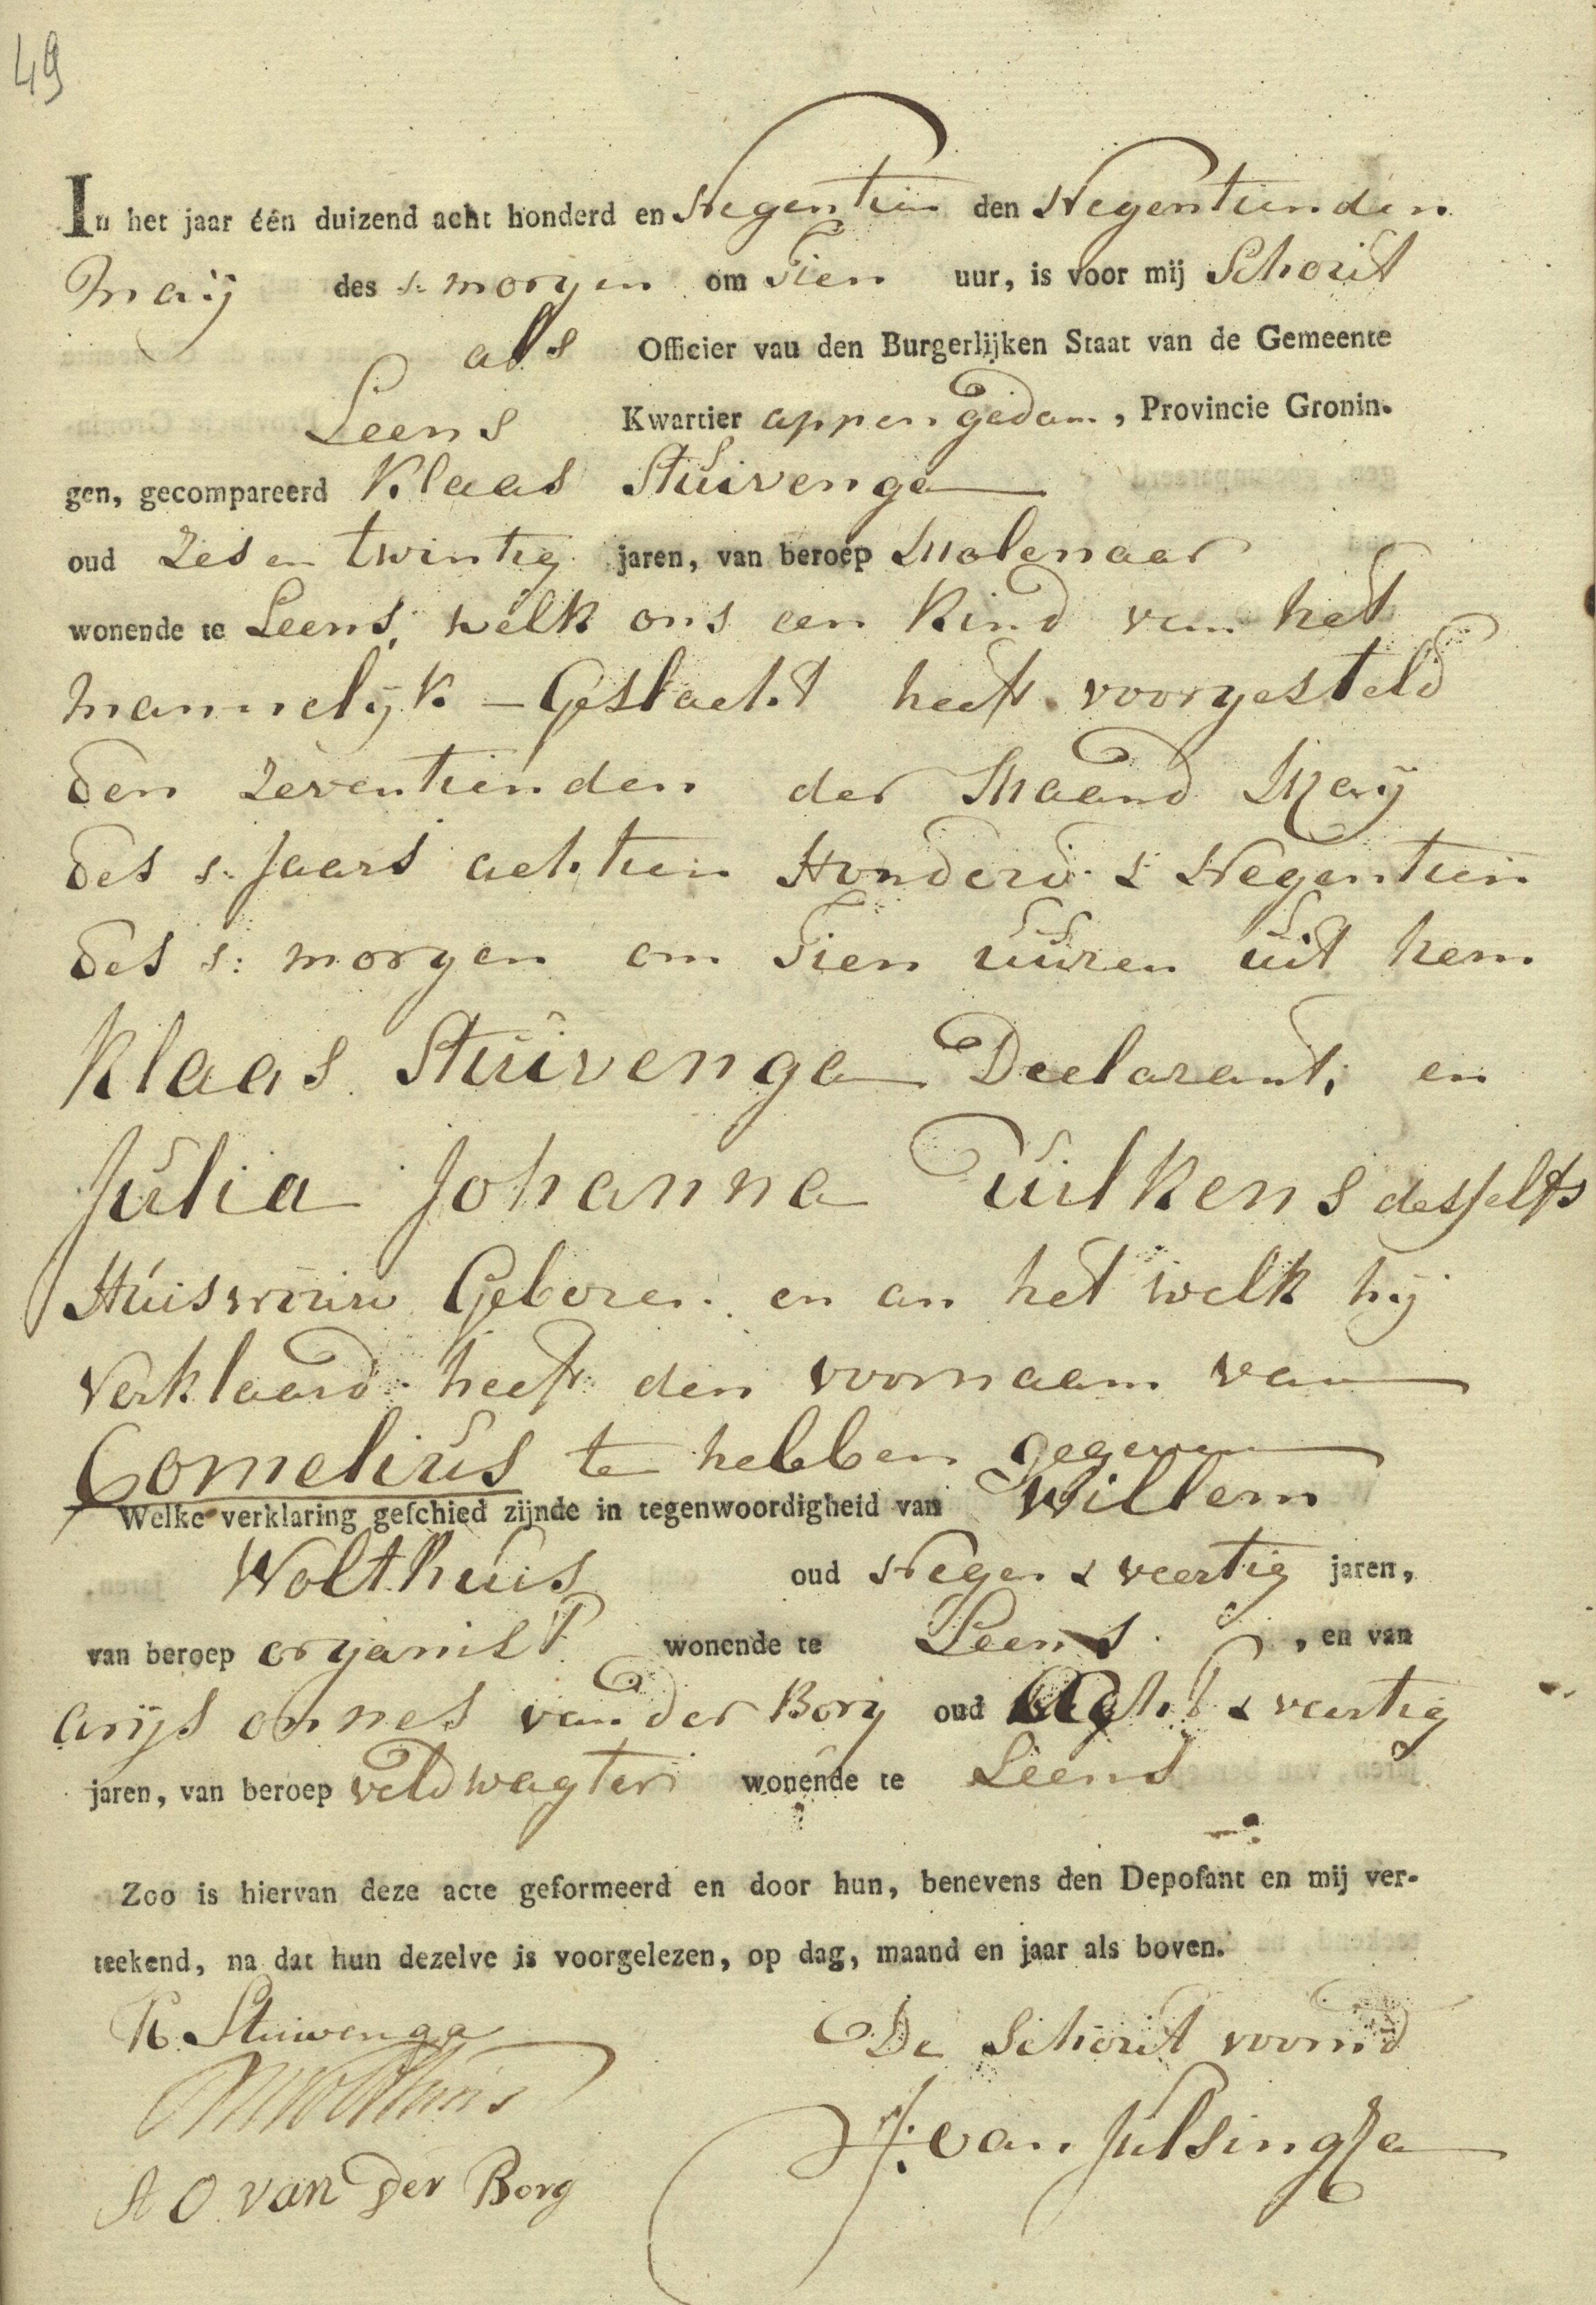 49
In het jaar één duizend acht honderd en Negentien den Negentienden
Maij des s: morgen om Tien uur, is voor mij Schout
als Officier van den Burgerlijken Staat van de Gemeente
Leens Kwartier appengedam, Provincie Gronin-
gen, gecompareerd Klaas Stuivenga
oud Zes en twintig jaren, van beroep Molenaar
wonende te Leens, welk ons een Kind van het
mannelijk - Geslacht heeft voorgesteld
den Zeventienden der Maand Maij
des s. Jaars achtien Honderd & Negentien
des s: morgen om Tien uuren uit hem
Klaas Stuivenga Declarant, en
Julia Johanna Tuilkens desselfs
Huisvrouw Geboren en an het welk hij
verklaard heeft den voornaam van
Cornelius te hebben gegeven
Welke verklaring geschied zijnde in tegenwoordigheid van Willem
Wolthuis oud Negen & veertig jaren,
van beroep organist wonende te Leens, en van
arijs onnes van der Borg oud Aght & veertig
jaren, van beroep veldwagter wonende te Leens
Zoo is hiervan deze acte geformeerd en door hun, benevens den Deposant en mij ver-
teekend, na dat hun dezelve is voorgelezen, op dag, maand en jaar als boven.
K. Stuivenga De Schout voornd
Wolthuis
van Julsingha
A O van der Borg